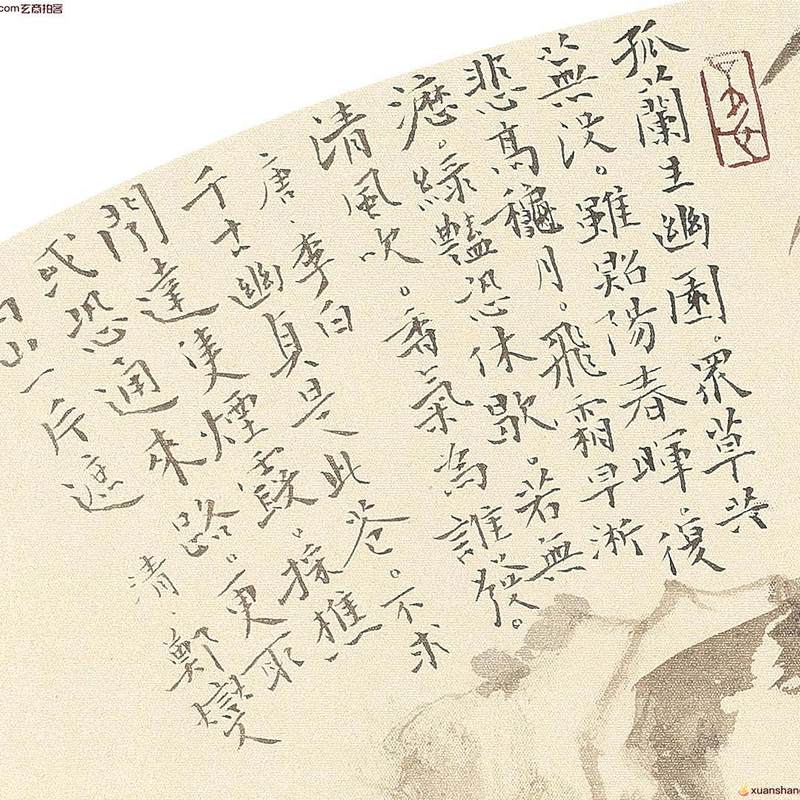 .com玄商拍客
孤蘭生幽園。眾草共
蕪没。雖照陽春暉。復
悲高龝月。飛霜早淅
瀝。緑豔恐休歇。若無
清風吹。香氣為誰發。
唐·李白
千古幽貞是此花。不求
聞達隻煙霞。採樵
或恐通來路。更取
高山一片遮
清·鄭燮
xuanshang